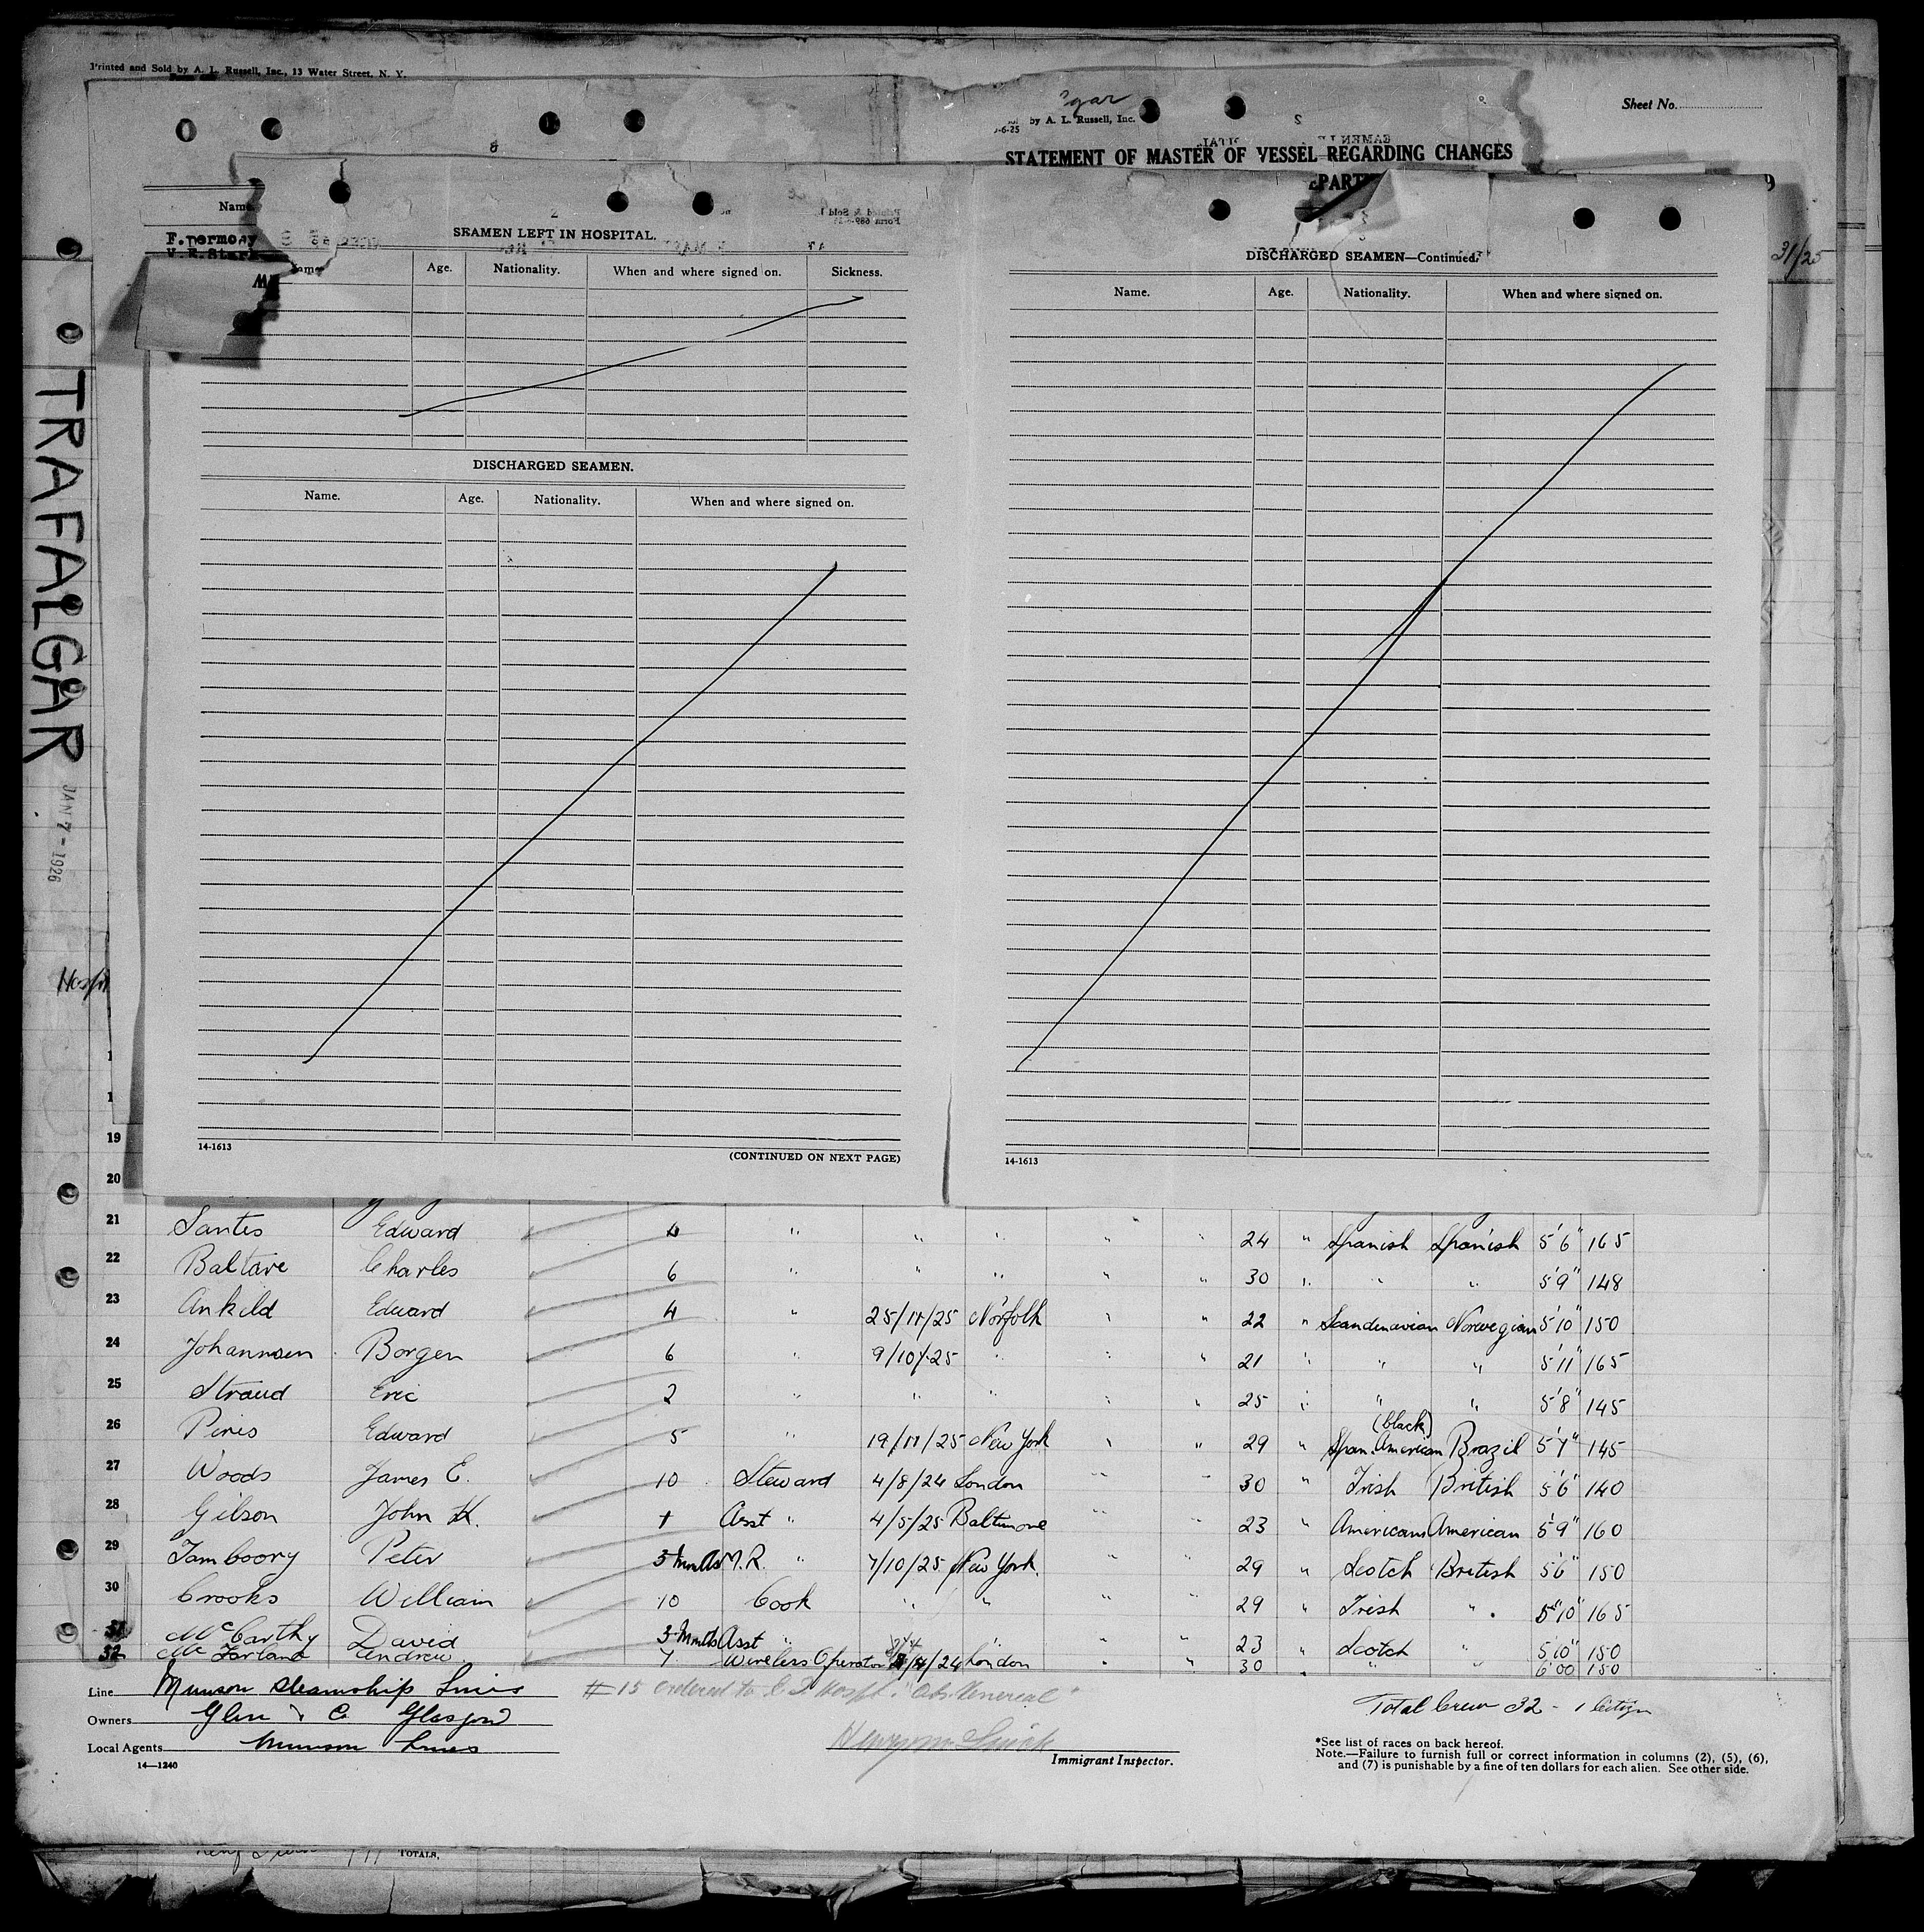 Printed and Sold by A. L. Russell, Inc., 13 Water Street, N. Y.
by A. L. Russell, Inc.
Sheet No.
STATEMENT OF MASTER OF VESSEL REGARDING CHANGES
Name
F. Dermony
31/25
TRAFALGAR
JAN 7 - 1926
SEAMEN LEFT IN HOSPITAL.
Age. Nationality. When and where signed on. Sickness.
DISCHARGED SEAMEN.
Name. Age. Nationality. When and where signed on.
14-1613
(CONTINUED ON NEXT PAGE)
DISCHARGED SEAMEN—Continued.
Name. Age. Nationality. When and where signed on.
14-1613
19
20
21 Santes Edward 4 " " " " " 24 " Spanish Spanish 5'6" 165
22 Baltare Charles 6 " " " " " 30 " " " 5'9" 148
23 Ankild Edward 4 " 25/11/25 Norfolk " " 22 " Scandinavian Norwegian 5'10" 150
24 Johannsen Borgen 6 " 9/10/25 " " " 21 " " " 5'11" 165
25 Straud Eric 2 " " " " " 25 " " " 5'8" 145
26 Pires Edward 5 " 19/11/25 New York " " 29 " Span. American (black) Brazil 5'7" 145
27 Woods James E. 10 Steward 4/8/24 London " " 30 " Irish British 5'6" 140
28 Gibson John H. 1 Asst " 4/5/25 Baltimore " " 23 " American American 5'9" 160
29 Tamboory Peter 3 Mnths M.R. " 7/10/25 New York. " " 29 " Scotch British 5'6" 150
30 Crooks William 10 Cook " " " " 29 " Irish " 5'10" 165
31 McCarthy David 3 Mnths Asst " " " 23 " Scotch " 5'10" 150
32 McFarland Andrew 7 Wireless Operator /24 London " " 30 " " " 6'00 150
Line Munson Steamship Lines
Owners Glen & Co Glasgow
Local Agents Munson Lines
14—1240
#15 ordered to
Immigrant Inspector.
Total Crew 32 - 1 Citizen
*See list of races on back hereof.
Note.—Failure to furnish full or correct information in columns (2), (5), (6),
and (7) is punishable by a fine of ten dollars for each alien. See other side.
TOTALS,